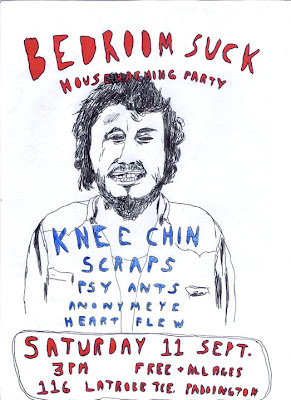 BEDROOM SUCK
HOUSEWARMING PARTY
KNEE CHIN
SCRAPS
PSY ANTS
ANONYMEYE
HEART FLEW
SATURDAY 11 SEPT.
3PM FREE + ALL AGES
116 LATROBE TCE. PADDINGTON